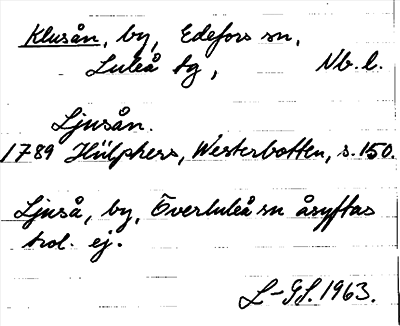 Klusån, by, Edefors sn,
Luleå tg, Nb. l.
Ljusån.
1789 Hülphers, Westerbotten, s. 150.
Ljuså, by, Överluleå sn åsyftas
trol. ej.
L-GS. 1963.